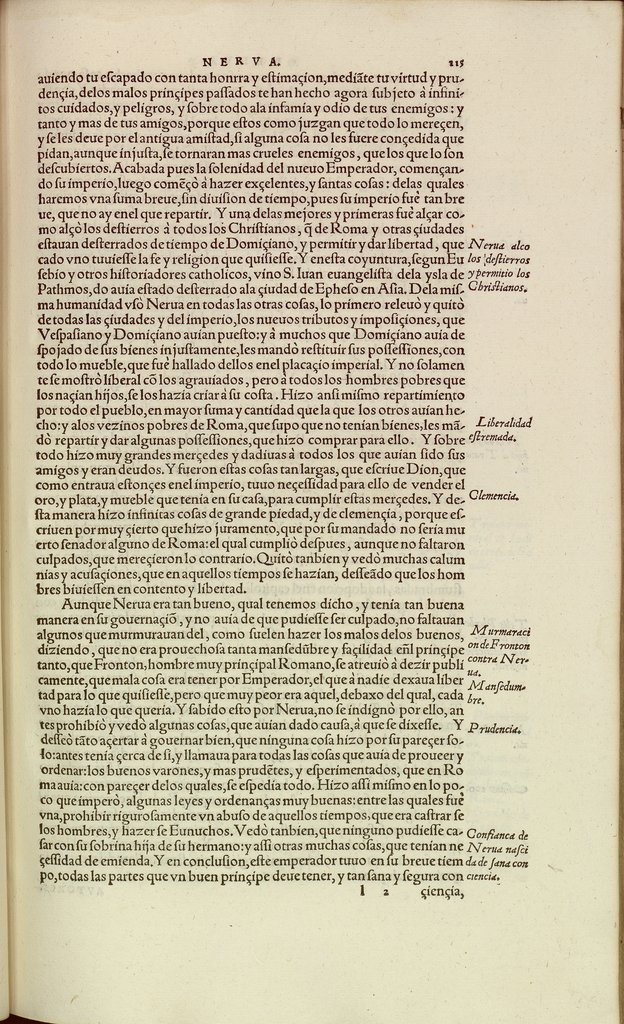 NERVA. 215
auiendo tu escapado con tanta honrra y estimaçion, mediãte tu virtud y pru-
dençia, delos malos prinçipes passados te han hecho agora subjeto à infini-
tos cuidados, y peligros, y sobre todo ala infamia y odio de tus enemigos: y
tanto y mas de tus amigos, porque estos como juzgan que todo lo mereçen,
y se les deue por el antigua amistad, si alguna cosa no les fuere conçedida que
pidan, aunque injusta, se tornaran mas crueles enemigos, que los que lo son
descubiertos. Acabada pues la solenidad del nueuo Emperador, començan-
do su imperio, luego comẽçò à hazer exçelentes, y santas cosas: delas quales
haremos vna suma breue, sin diuision de tiempo, pues su imperio fuè tan bre
ue, que no ay en el que repartir. Y una delas mejores y primeras fuè alçar co-
mo alçò los destierros à todos los Christianos, q̃ de Roma y otras çiudades
estauan desterrados de tiempo de Domiçiano, y permitir y dar libertad, que
cado vno tuuiesse la fe y religion que quisiesse. Y en esta coyuntura, segun Eu
sebio y otros historiadores catholicos, vino S. Iuan euangelista dela ysla de
Pathmos, do auia estado desterrado ala çiudad de Epheso en Asia. Dela mis-
ma humanidad vsò Nerua en todas las otras cosas, lo primero releuò y quitò
de todas las çiudades y del imperio, los nueuos tributos y imposiçiones, que
Vespasiano y Domiçiano auian puesto: y à muchos que Domiçiano auia de
spojado de sus bienes injustamente, les mandò restituir sus possessiones, con
todo lo mueble, que fuè hallado dellos en el placaçio imperial. Y no solamen
te se mostrò liberal cõ los agrauiados, pero à todos los hombres pobres que
los naçian hijos, se los hazia criar à su costa. Hizo ansi mismo repartimiento
por todo el pueblo, en mayor suma y cantidad que la que los otros auian he-
cho: y a los vezinos pobres de Roma, que supo que no tenian bienes, les mã-
dò repartir y dar algunas possessiones, que hizo comprar para ello. Y sobre
todo hizo muy grandes merçedes y dadiuas à todos los que auian sido sus
amigos y eran deudos. Y fueron estas cosas tan largas, que escriue Dion, que
como entraua estonçes en el imperio, tuuo neçessidad para ello de vender el
oro, y plata, y mueble que tenia en su casa, para cumplir estas merçedes. Y de-
sta manera hizo infinitas cosas de grande piedad, y de clemençia, porque es-
criuen por muy çierto que hizo juramento, que por su mandado no seria mu
erto senador alguno de Roma: el qual cumpliò despues, aunque no faltaron
culpados, que mereçieron lo contrario. Quitò tanbien y vedò muchas calum
nias y acusaçiones, que en aquellos tiempos se hazian, desseãdo que los hom
bres biuiessen en contento y libertad.
Aunque Nerua era tan bueno, qual tenemos dicho, y tenia tan buena
manera en su gouernaçiõ, y no auia de que pudiesse ser culpado, no faltauan
algunos que murmurauan del, como suelen hazer los malos delos buenos,
diziendo, que no era prouechosa tanta mansedũbre y façilidad enel prinçipe
tanto, que Fronton, hombre muy prinçipal Romano, se atreuiò à dezir publi
camente, que mala cosa era tener por Emperador, el que à nadie dexaua liber
tad para lo que quisiesse, pero que muy peor era aquel, debaxo del qual, cada
vno hazia lo que queria. Y sabido esto por Nerua, no se indignò por ello, an
tes prohibiò y vedò algunas cosas, que auian dado causa, à que se dixesse. Y
desseò tãto açertar à gouernar bien, que ninguna cosa hizo por su pareçer so-
lo: antes tenia çerca de si, y llamaua para todas las cosas que auia de proueer y
ordenar: los buenos varones, y mas prudẽtes, y esperimentados, que en Ro
ma auia: con pareçer delos quales, se espedia todo. Hizo assi mismo en lo po-
co que imperò, algunas leyes y ordenanças muy buenas: entre las quales fuè
vna, prohibir rigurosamente vn abuso de aquellos tiempos, que era castrar se
los hombres, y hazer se Eunuchos. Vedò tanbien, que ninguno pudiesse ca-
sar con su sobrina hija de su hermano: y assi otras muchas cosas, que tenian ne
çessidad de emienda. Y en conclusion, este emperador tuuo en su breue tiem
po, todas las partes que vn buen prinçipe deue tener, y tan sana y segura con
l 2 çiençia,
Nerua alco
los destierros
y permitio los
Christianos.
Liberalidad
estremada.
Clemencia.
Murmaraci
on de Fronton
contra Ner-
ua.
Mansedum-
bre.
Prudencia.
Confianca de
Nerua nasci
da de sana con
ciencia.